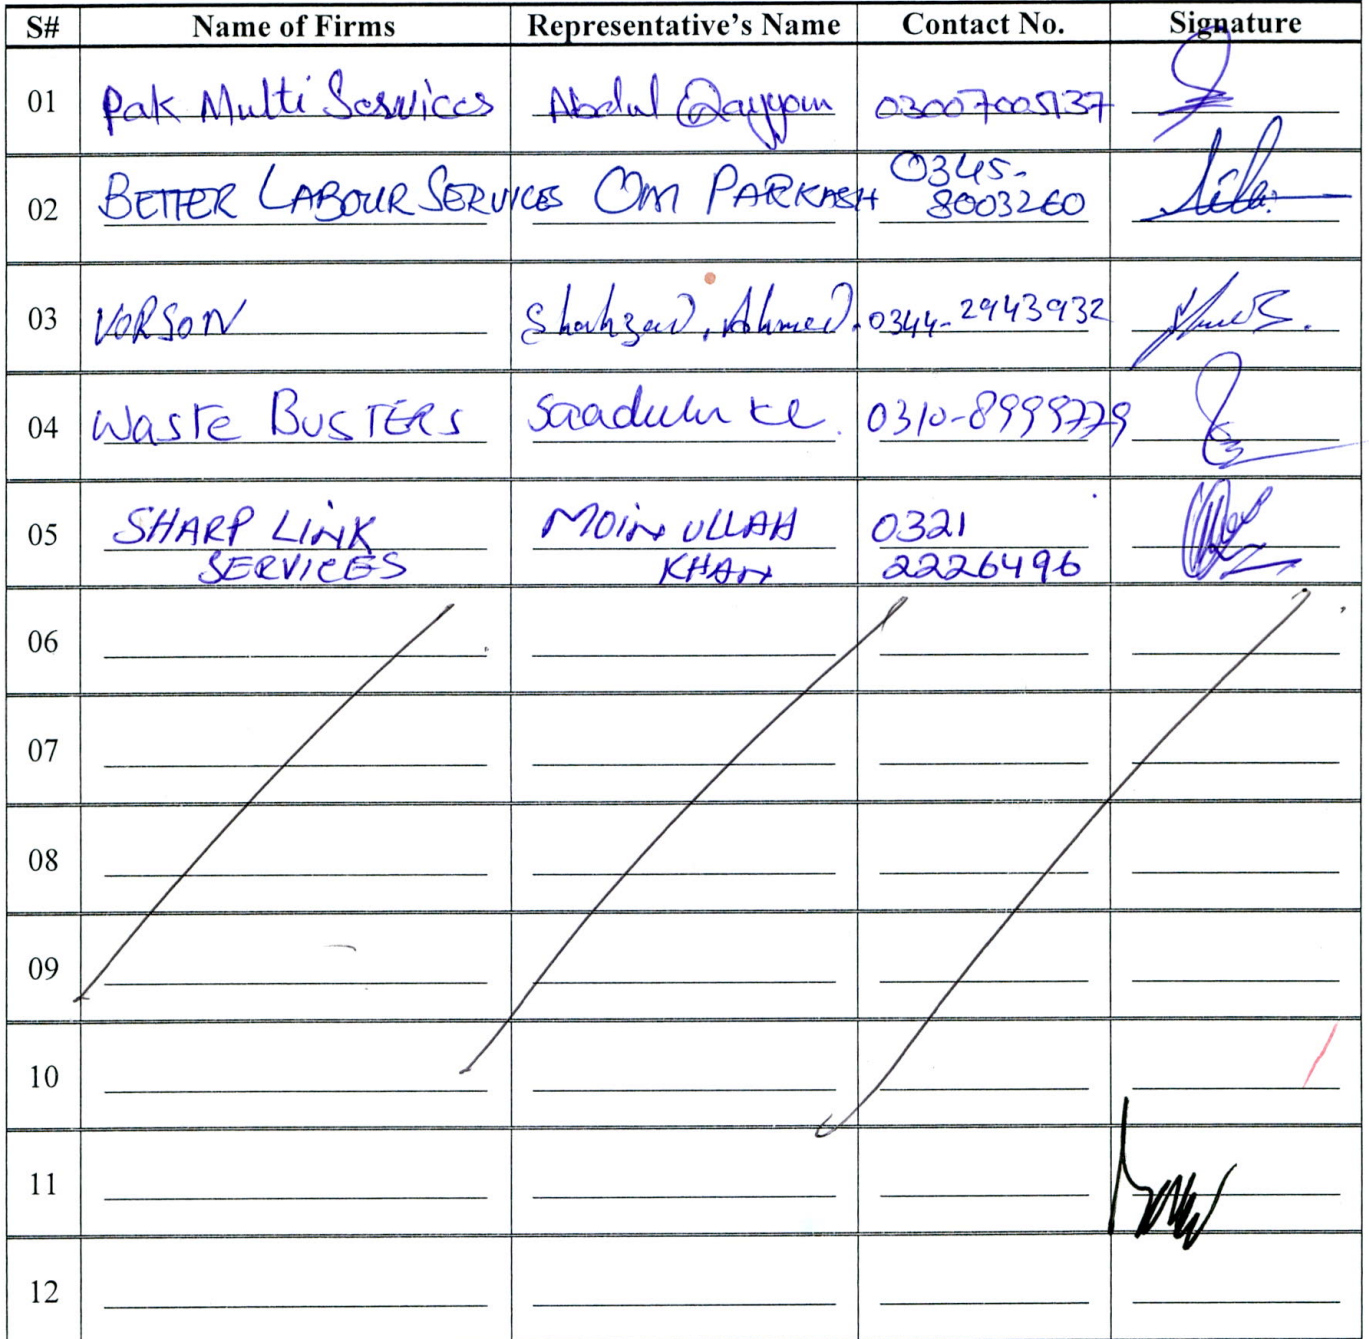 S# Name of Firms Representative's Name Contact No. Signature
01 Pak Multi Services Abdul Qayyom 03007005137
02 BETTER LABOUR SERVICES OM PARKASH 0345-
8003260
03 VORSON Shahzad, Ahmed. 0344-2943932
04 Waste BUSTERS 0310-8999779
05 SHARP LINK MOIN ULLAH 0321
SERVICES KHAN 2226496
06
07
08
09
10
11
12